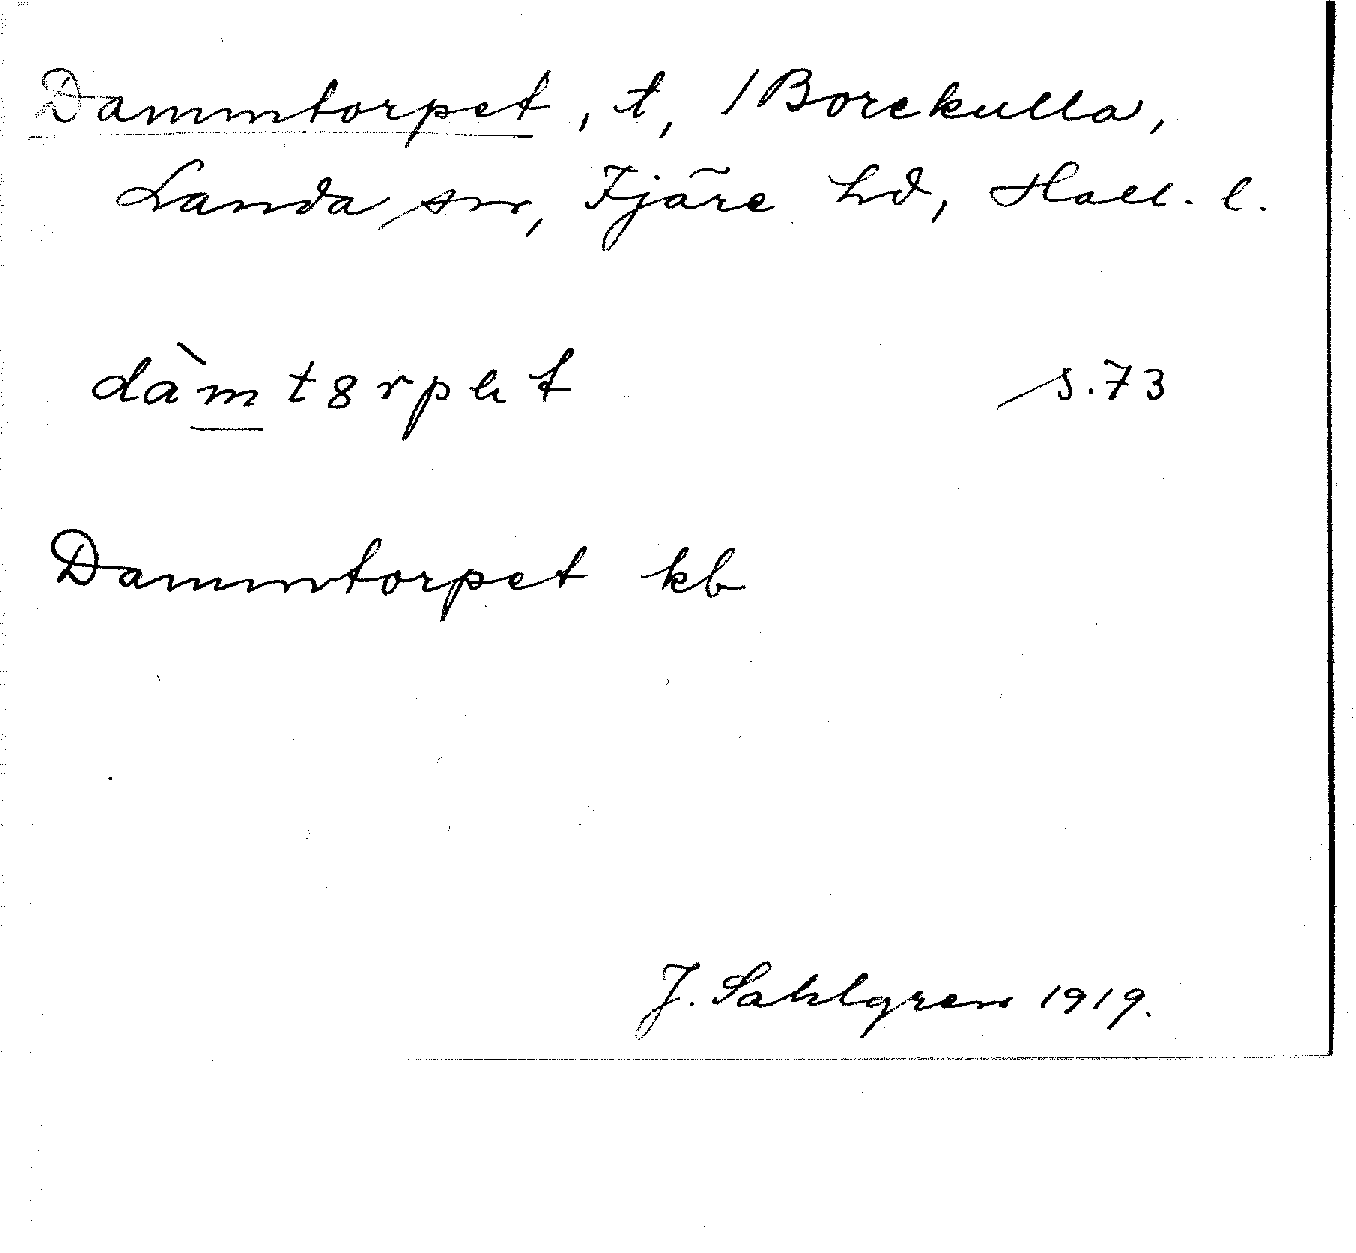 Dammtorpet, t, / Borekulla,
Landa sn, Fjäre hd, Hall. l.
dàmt8rpət s. 73
Dammtorpet kb
J. Sahlgren 1919.